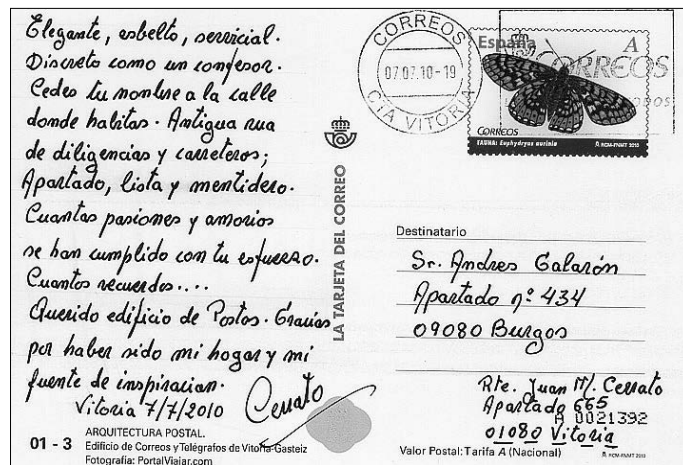 Elegante, esbelto, servicial.
Discreto como un confesor.
Cedes tu nombre a la calle
donde habitas. Antigua rua
de diligencias y carreteros;
Apartado, lista y mentidero.
Cuantas pasiones y amorios
se han cumplido con tu esfuerzo.
Cuantos recuerdos....
Querido edificio de Postas. Gracias
por haber sido mi hogar y mi
fuente de inspiracian.
Vitoria 7/7/2010 Cerrato
01 - 3
ARQUITECTURA POSTAL.
Edificio de Correos y Telégrafos de Vitoria-Gasteiz
Fotografía: PortalViajar.com
LA TARJETA DEL CORREO
CORREOS
07.07.10-19
CTA VITORIA
España
A
CORREOS
CORREOS
FAUNA: Euphydryas aurinia
RCM-FNMT 2010
Destinatario
Sr. Andres Galarón
Apartado nº 434
09080 Burgos
Rte. Juan Mª. Cerrato
Apartado 665
A 0021392
01080 Vitoria
Valor Postal: Tarifa A (Nacional)
RCM-FNMT 2010